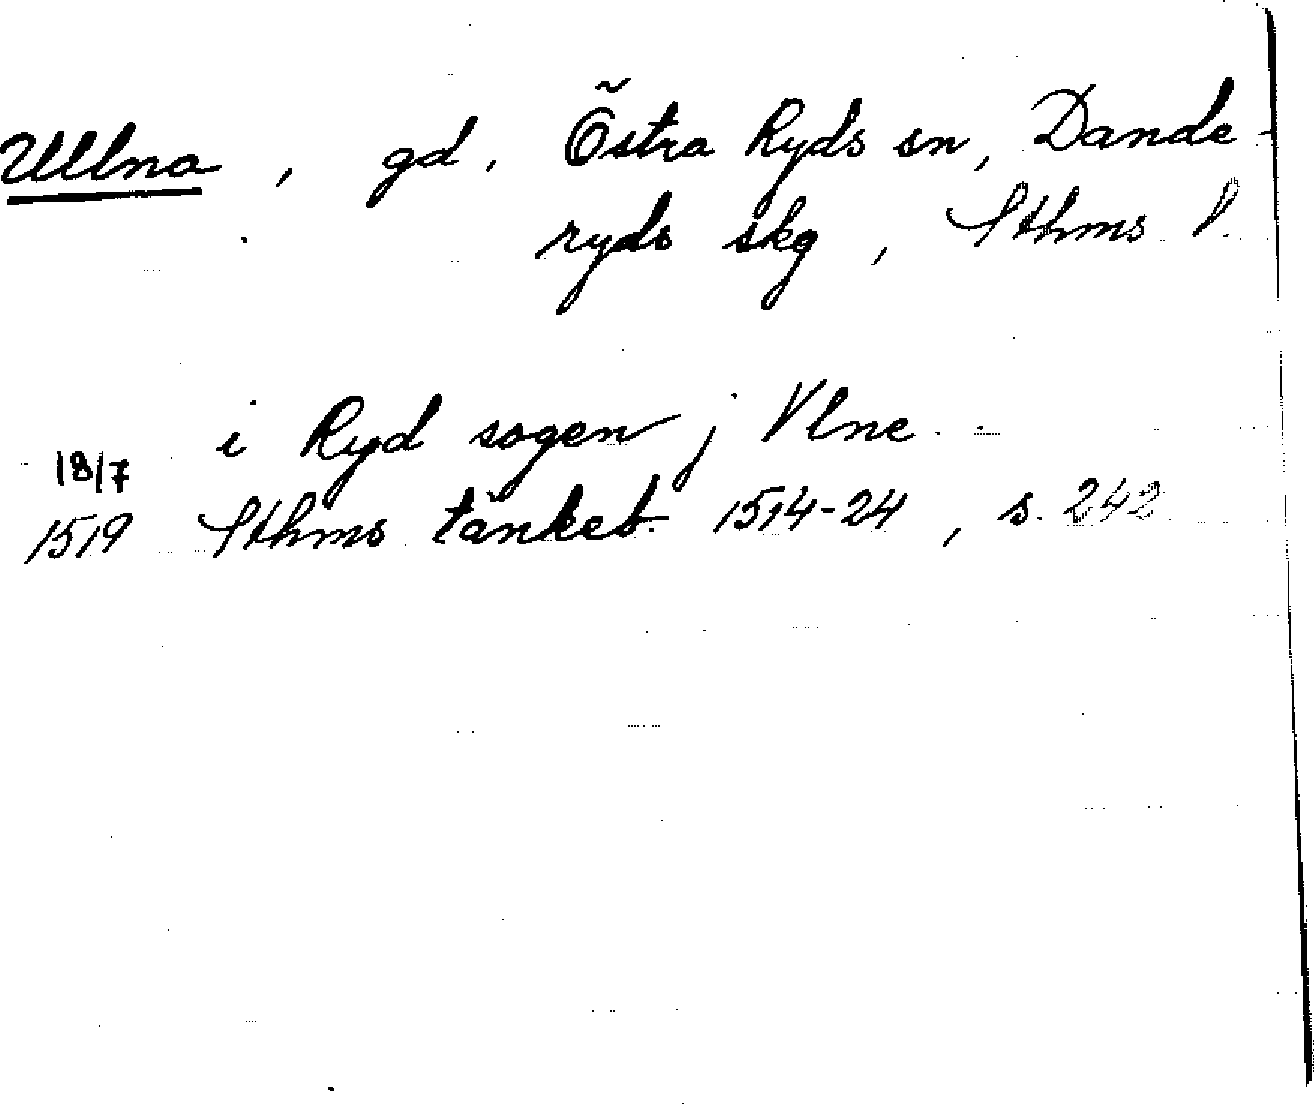 Ullna, gd, Östra Ryds sn, Dande-
ryds skg, Sthms l.
i Ryd sogen j Vlne
18/7
1519 Sthms tänkeb. 1514-24, s. 242